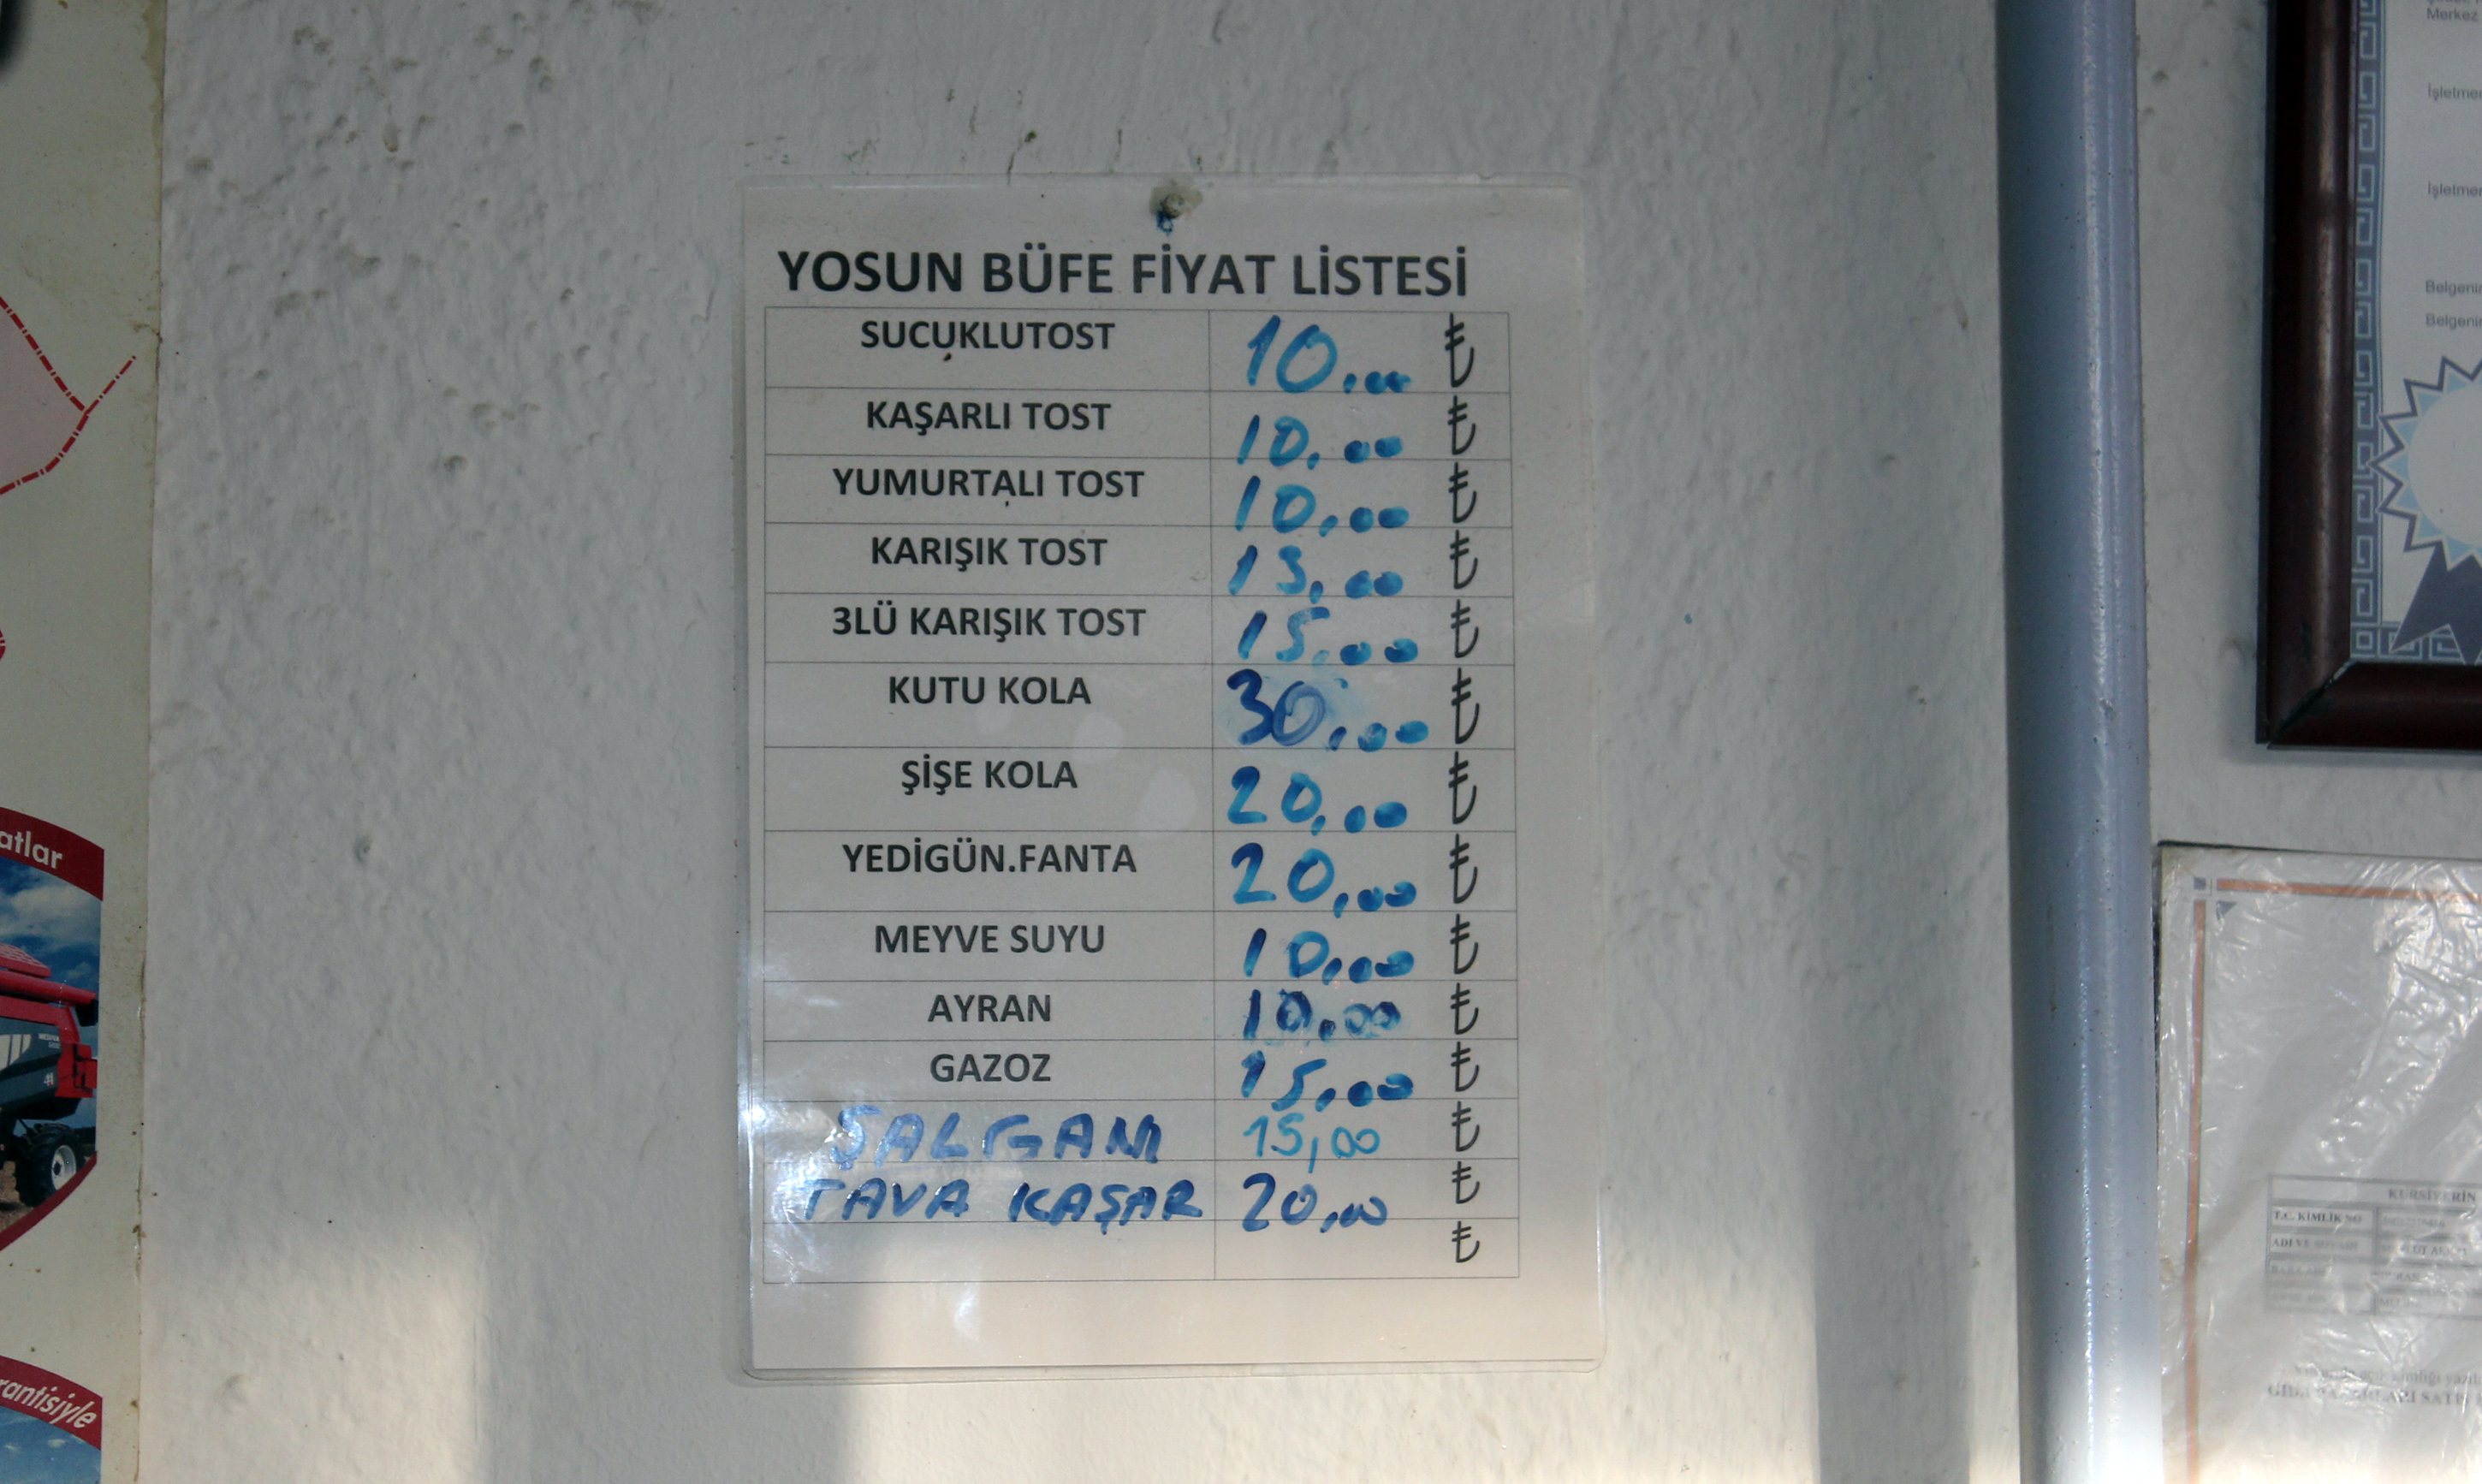 YOSUN BÜFE FİYAT LİSTESİ
SUCUKLUTOST 10.00 ₺
KAŞARLI TOST 10,00 ₺
YUMURTALI TOST 10,00 ₺
KARIŞIK TOST 13,00 ₺
3LÜ KARIŞIK TOST 15,00 ₺
KUTU KOLA 30,00 ₺
ŞİŞE KOLA 20,00 ₺
YEDİGÜN.FANTA 20,00 ₺
MEYVE SUYU 10,00 ₺
AYRAN 10,00 ₺
GAZOZ 15,00 ₺
ŞALGAM 15,00 ₺
TAVA KAŞAR 20,00 ₺
₺
atlar
rantisiyle
Merkez
İşletme
İşletme
Belgenin
Belgenin
KURSİYERİN
T.C. KİMLİK NO
ADI VE SOYADI